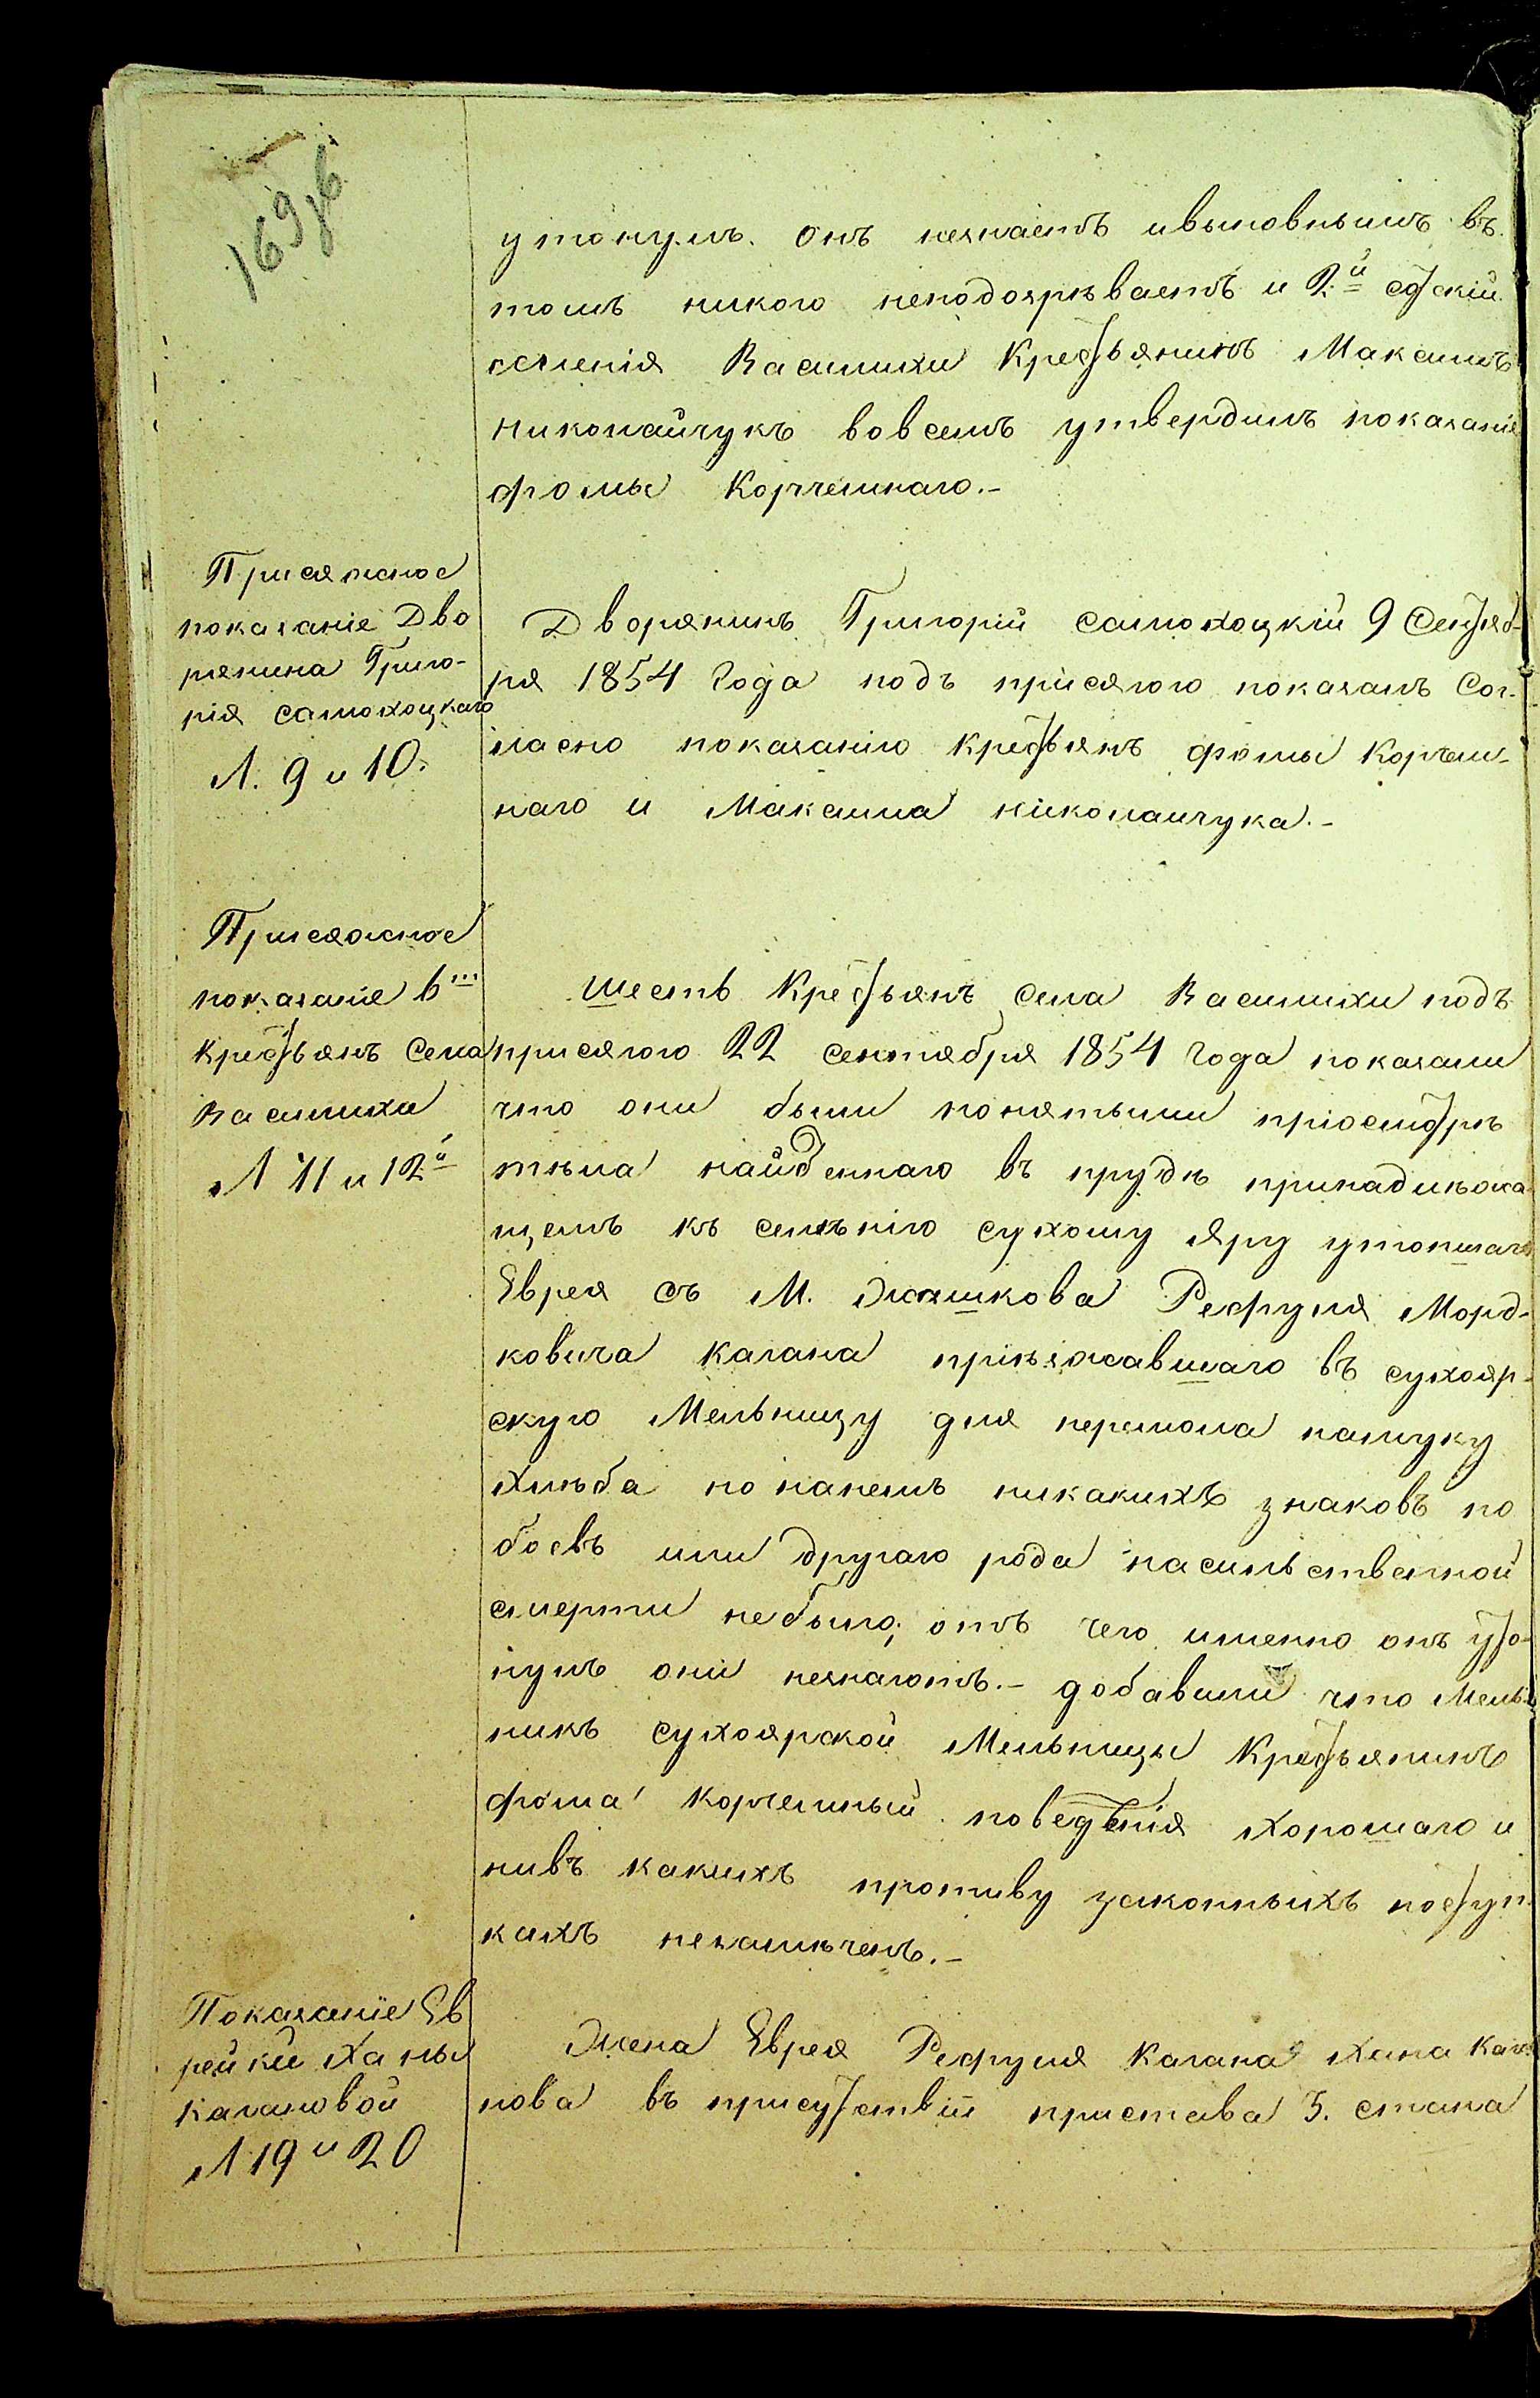 169об
утонулъ. Онъ незнаетъ ивыновнымъ въ
томъ никого неподозрѣваетъ и 2й сотскій
селенія Василихи Крестьянинъ Максимъ
Николайчукъ вовсемъ утвердилъ показаніе
Фомы Корчемнаго.-
Присяжное
показаніе Дво
рянина Григо-
рія Самохоцкаго
Л. 9 и 10.
Дворянинъ Григорій Самохоцкій 9 Сентяб-
ря 1854 Года подъ присягою показалъ Сог-
ласно показанію крестьянъ Фомы Корчем-
наго и Максима Николайчука.-
Присяжное
показаніе 6ти
Крестьянъ Села
Василиха
Л 11 и 12й
Шесть Крестьянъ Села Василихи подъ
присягою 22 сентября 1854 Года показали
что они были понятыми приосмотрѣ
тѣла найденнаго въ прудѣ принадлѣжа
щемъ къ селѣнію Сухому Яру утопшаго
Еврея съ М. Жашкова Рефуля Морд-
ковича Кагана пріѣзжавшаго въ сухояр-
скую Мельницу для перемола намуку
хлѣба но нанемъ никакихъ знаковъ по
боевъ или другаго рода насильственной
смерти небыло; отъ чего именно онъ уто-
нулъ они незнаютъ.- добавили что Мель-
никъ сухоярской Мельницы Крестьянинъ
Фома Корчемный поведѣнія хорошаго и
нивъ какихъ противу законныхъ поступ-
кахъ незамѣченъ.-
Показаніе Ев
рейки Ханы
Кагановой
Л 19 и 20
Жена Еврея Рефуля Кагана Хана Кага
нова въ присутствіи пристава 3. стана